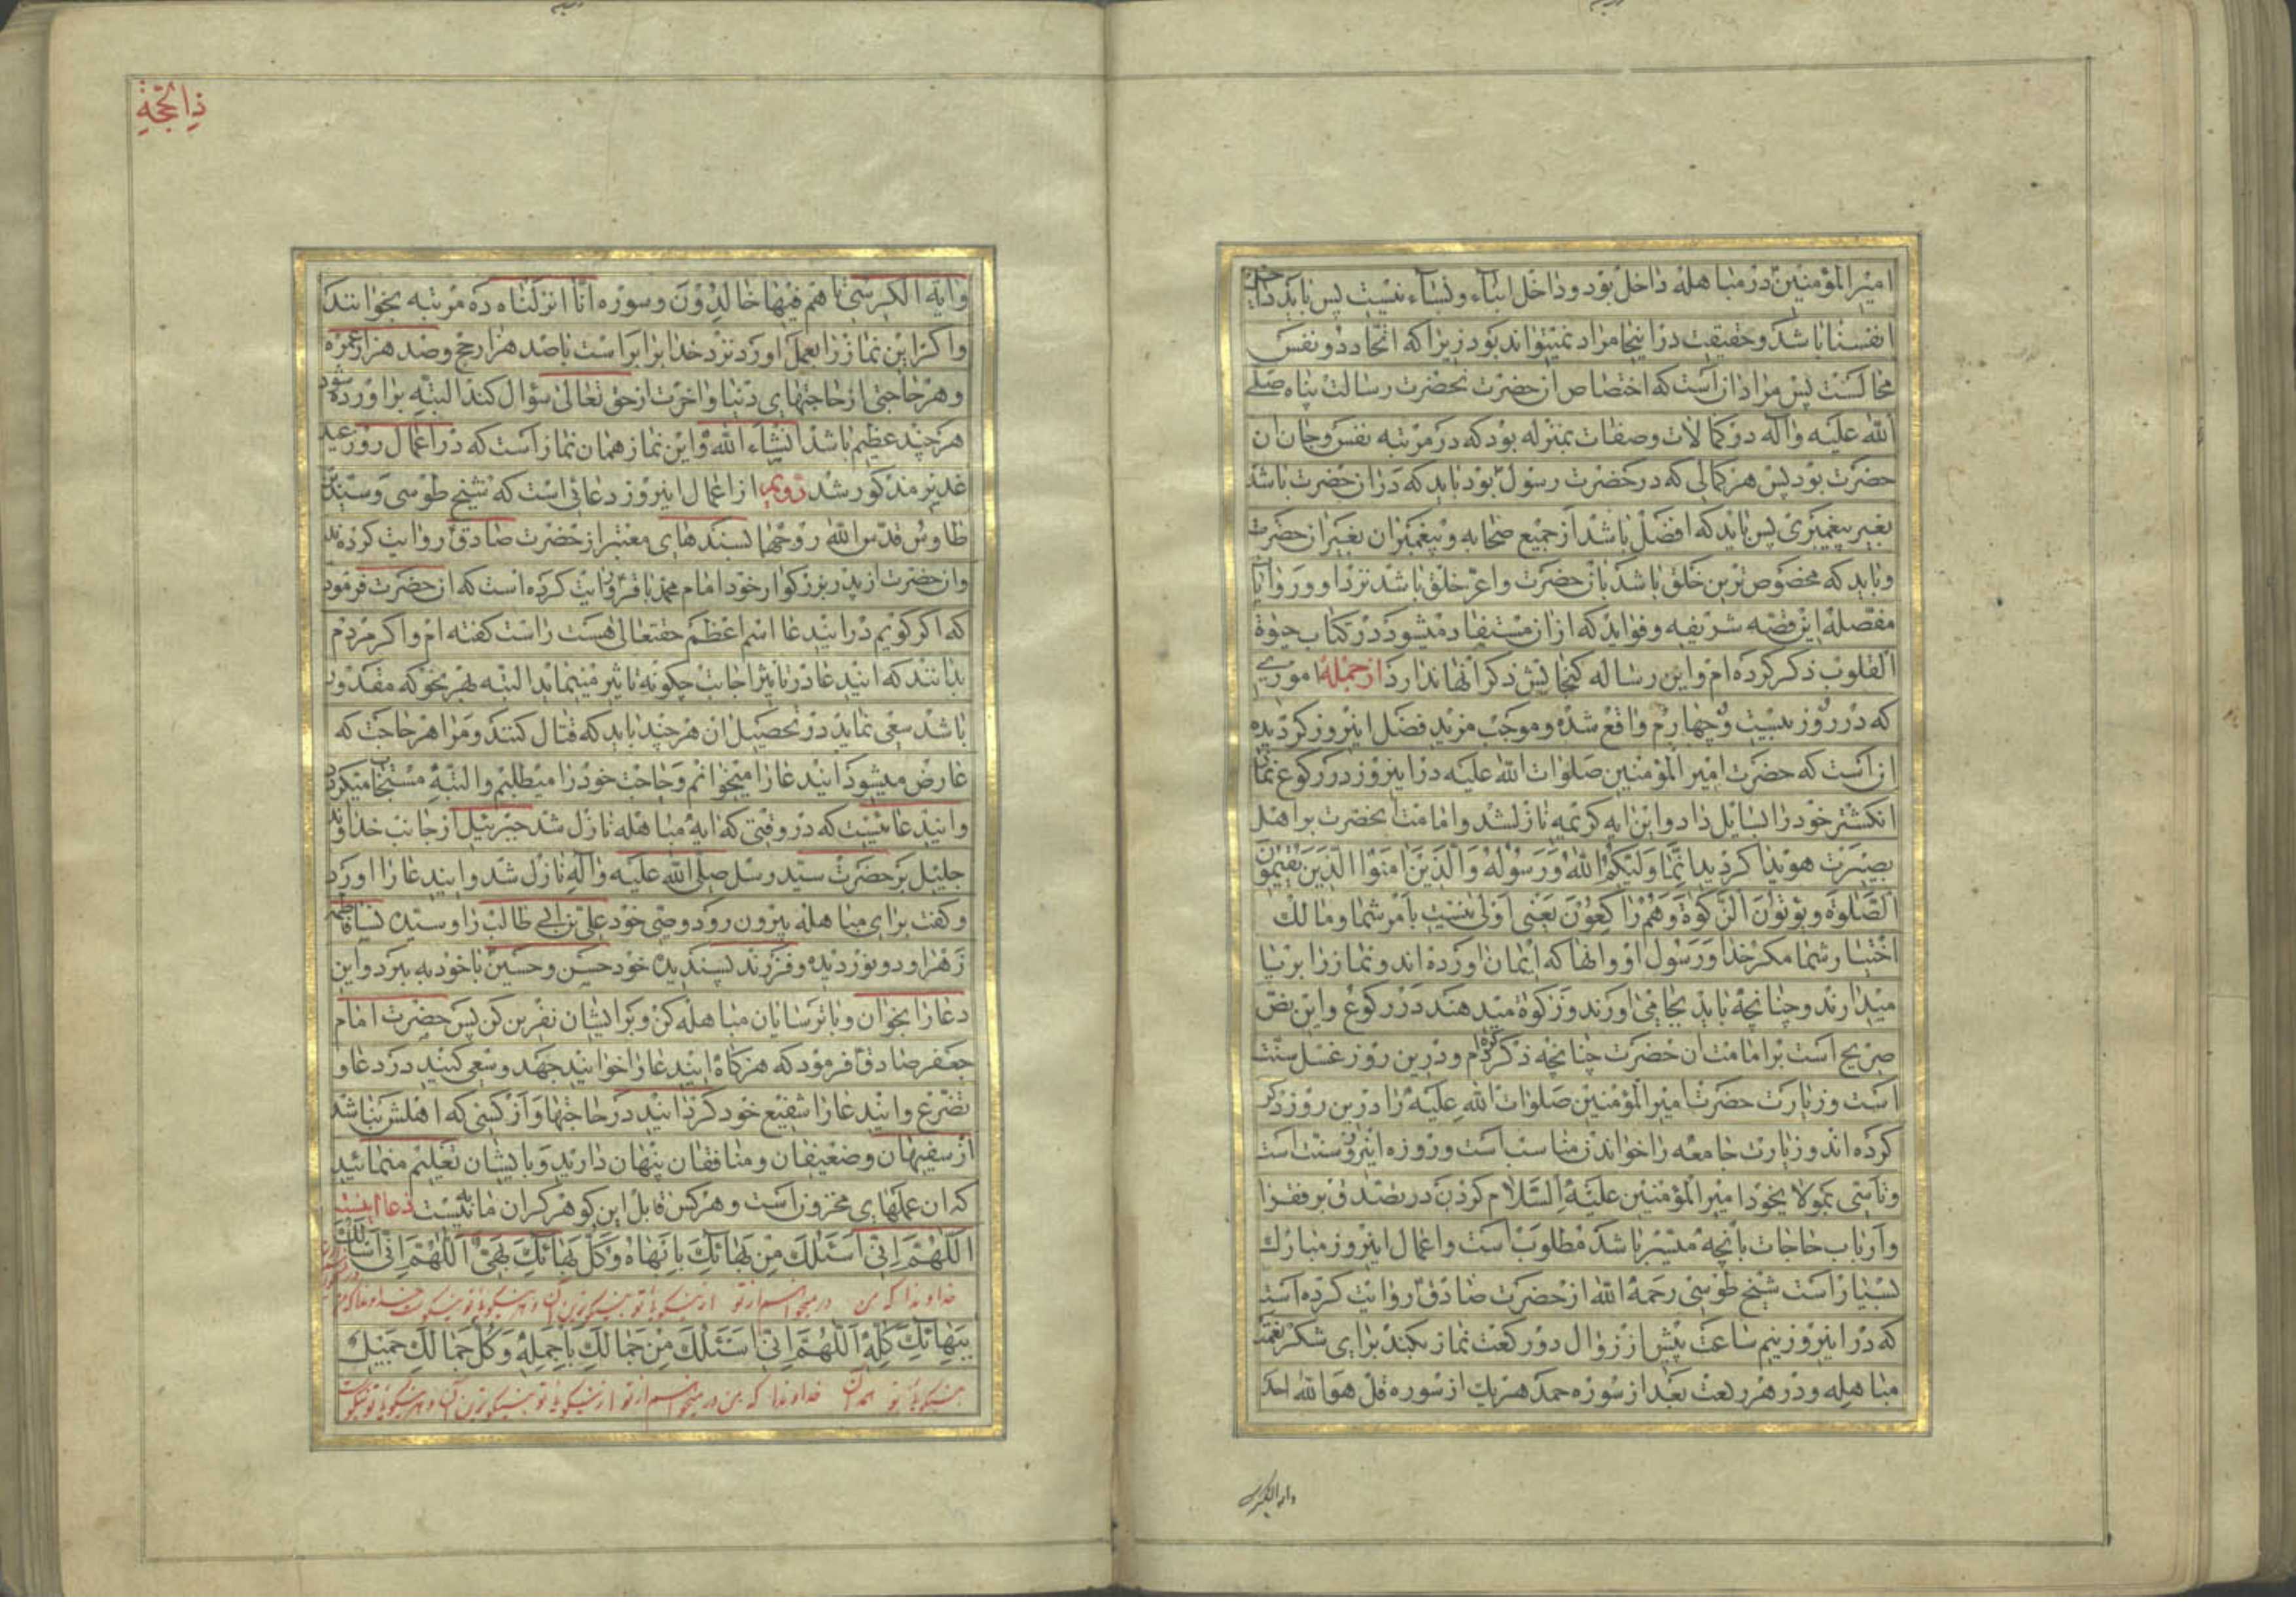 امیر المؤمنین در مباهله داخل بود و داخل ابناء و نساء نیست پس باید داخل
انفسنا باشد و حقیقت در اینجا مراد نمیتواند بود زیرا که اتحاد دو نفس
محالست پس مراد از انست که اختصاص انحضرت بحضرت رسالت پناه صلی
الله علیه و آله در کمالات و صفات بمنزله بود که در مرتبه نفس و جان ان
حضرت بود پس هر کمالی که در حضرت رسول بود باید که در انحضرت باشد
بغیر پیغمبری پس باید که افضل باشد از جمیع صحابه و پیغمبران بغیر انحضرت
و باید که مخصوص ترین خلق باشد بانحضرت و اعز خلق باشد نزد او و روایات
مفصله این قصه شریفه و فواید که از ان مستفاد میشود در کتاب حیوة
القلوب ذکر کرده ام و این رساله گنجایش ذکر انها ندارد از جمله اموری
که در روز بیست و چهارم واقع شده و موجب مزید فضل اینروز گردیده
انست که حضرت امیر المؤمنین صلوات الله علیه در اینروز در رکوع نماز
انگشتر خود را بسایل داد و این ایه کریمه نازلشد و امامت انحضرت بر اهل
بصیرت هویدا گردید انما ولیکم الله و رسوله والذین امنوا الذین یقیمون
الصلوة ویؤتون الزکوة وهم راکعون یعنی اولی نیست بامر شما و مالک
اختیار شما مگر خدا و رسول او و انها که ایمان اورده اند و نماز را برپا
میدارند و چنانچه باید بجا می اورند و زکوة میدهند در رکوع و این نص
صریح است بر امامت ان حضرت چنانچه ذکر کرده ام و در این روز غسل سنت
است و زیارت حضرت امیر المؤمنین صلوات الله علیه را در این روز ذکر
کرده اند و زیارت جامعه را خواندن مناسب است و روزه اینروز سنت است
و تاسی بمولای خود امیر المؤمنین علیه السلام کردن در تصدق بر فقرا
و ارباب حاجات بانچه میسر باشد مطلوب است و اعمال اینروز مبارک
بسیار است شیخ طوسی رحمه الله از حضرت صادق روایت کرده است
که در اینروز نیم ساعت پیش از زوال دو رکعت نماز بکند برای شکر نعمت
مباهله و در هر رکعت بعد از سوره حمد هر یک از سوره قل هو الله احد
وایة الکرسی
ذی الحجة
و ایة الکرسی تا هم فیها خالدون و سوره انا انزلناه ده مرتبه بخوانند
و اگر این نماز را بعمل اورد نزد خدا برابر است با صد هزار حج و صد هزار عمره
و هر حاجتی از حاجتهای دنیا و اخرت از حق تعالی سؤال کند البته براورده شود
هر چند عظیم باشد انشاء الله و این نماز همان نماز است که در اعمال روز عید
غدیر مذکور شد دویم از اعمال اینروز دعائی است که شیخ طوسی و سید بن
طاوس قدس الله روحهما بسندهای معتبر از حضرت صادق روایت کرده اند
و انحضرت از پدر بزرگوار خود امام محمد باقر روایت کرده است که انحضرت فرمود
که اگر گویم در ایندعا اسم اعظم حقتعالی هست راست گفته ام و اگر مردم
بدانند که ایندعا در تاثیر اجابت چگونه تاثیر مینماید البته بهر نحو که مقدور
باشد سعی نماید در تحصیل ان هر چند باید که قتال کنند و مرا هر حاجت که
عارض میشود ایندعا را میخوانم و حاجت خود را میطلبم و البته مستجاب میگردد
و ایندعائیست که در وقتی که ایه مباهله نازل شد جبرئیل از جانب خداوند
جلیل بر حضرت سید رسل صلی الله علیه و آله نازل شد و ایندعا را اورد
و گفت برای مباهله بیرون رود و وصی خود علی بن ابی طالب را و سیده نساء فاطمه
زهرا و دو نور دیده و فرزند پسندیده خود حسن و حسین با خود به ببرد و این
دعا را بخوان و با ترسایان مباهله کن و بر ایشان نفرین کن پس حضرت امام
جعفر صادق فرمود که هرگاه ایندعا را خوانید جهد و سعی کنید در دعا و
تضرع و ایندعا را شفیع خود گردانید در حاجتها و از کسی که اهلش نباشد
از سفیهان و ضعیفان و منافقان پنهان دارید و بایشان تعلیم منمائید
که ان عملهای مخزون است و هر کس قابل این گوهر گران مایه نیست دعا اینست
اللهم انی اسئلک من بهائک بابهاه وکل بهائک بهی اللهم انی اسئلک
خداوندا که من در میخواهم از تو از نیکویهای تو نیکوترین آن و همه نیکویهای تو نیکوست خداوندا که من
ببهائک کله اللهم انی اسئلک من جمالک باجمله وکل جمالک جمیل
بنیکوئیهای تو همه آن خداوندا که من در میخواهم از تو از نیکویهای تو نیکوترین آن و همه نیکویهای تو نیکوست